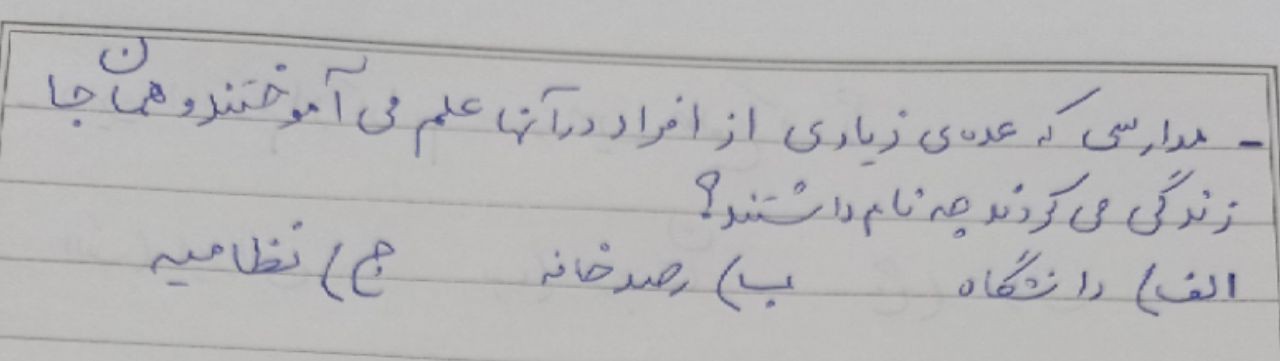 - مدارسی که عده‌ی زیادی از افراد در آنها علم می آموختند و همان جا
زندگی می کردند چه نام داشتند؟
الف) دانشگاه ب) رصدخانه ج) نظامیه